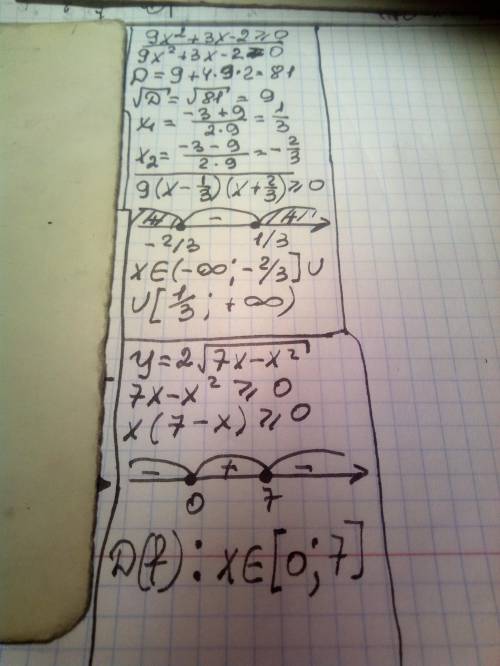 9x²+3x-2≥0
9x²+3x-2=0
D=9+4·9·2=81
√D=√81=9
x₁=(-3+9)/(2·9)=1/3
x₂=(-3-9)/(2·9)=-2/3
9(x-1/3)(x+2/3)≥0
+ - +
-2/3 1/3
x∈(-∞;-2/3]∪
∪[1/3;+∞)
y=2√(7x-x²)
7x-x²≥0
x(7-x)≥0
- + -
0 7
D(f): x∈[0;7]